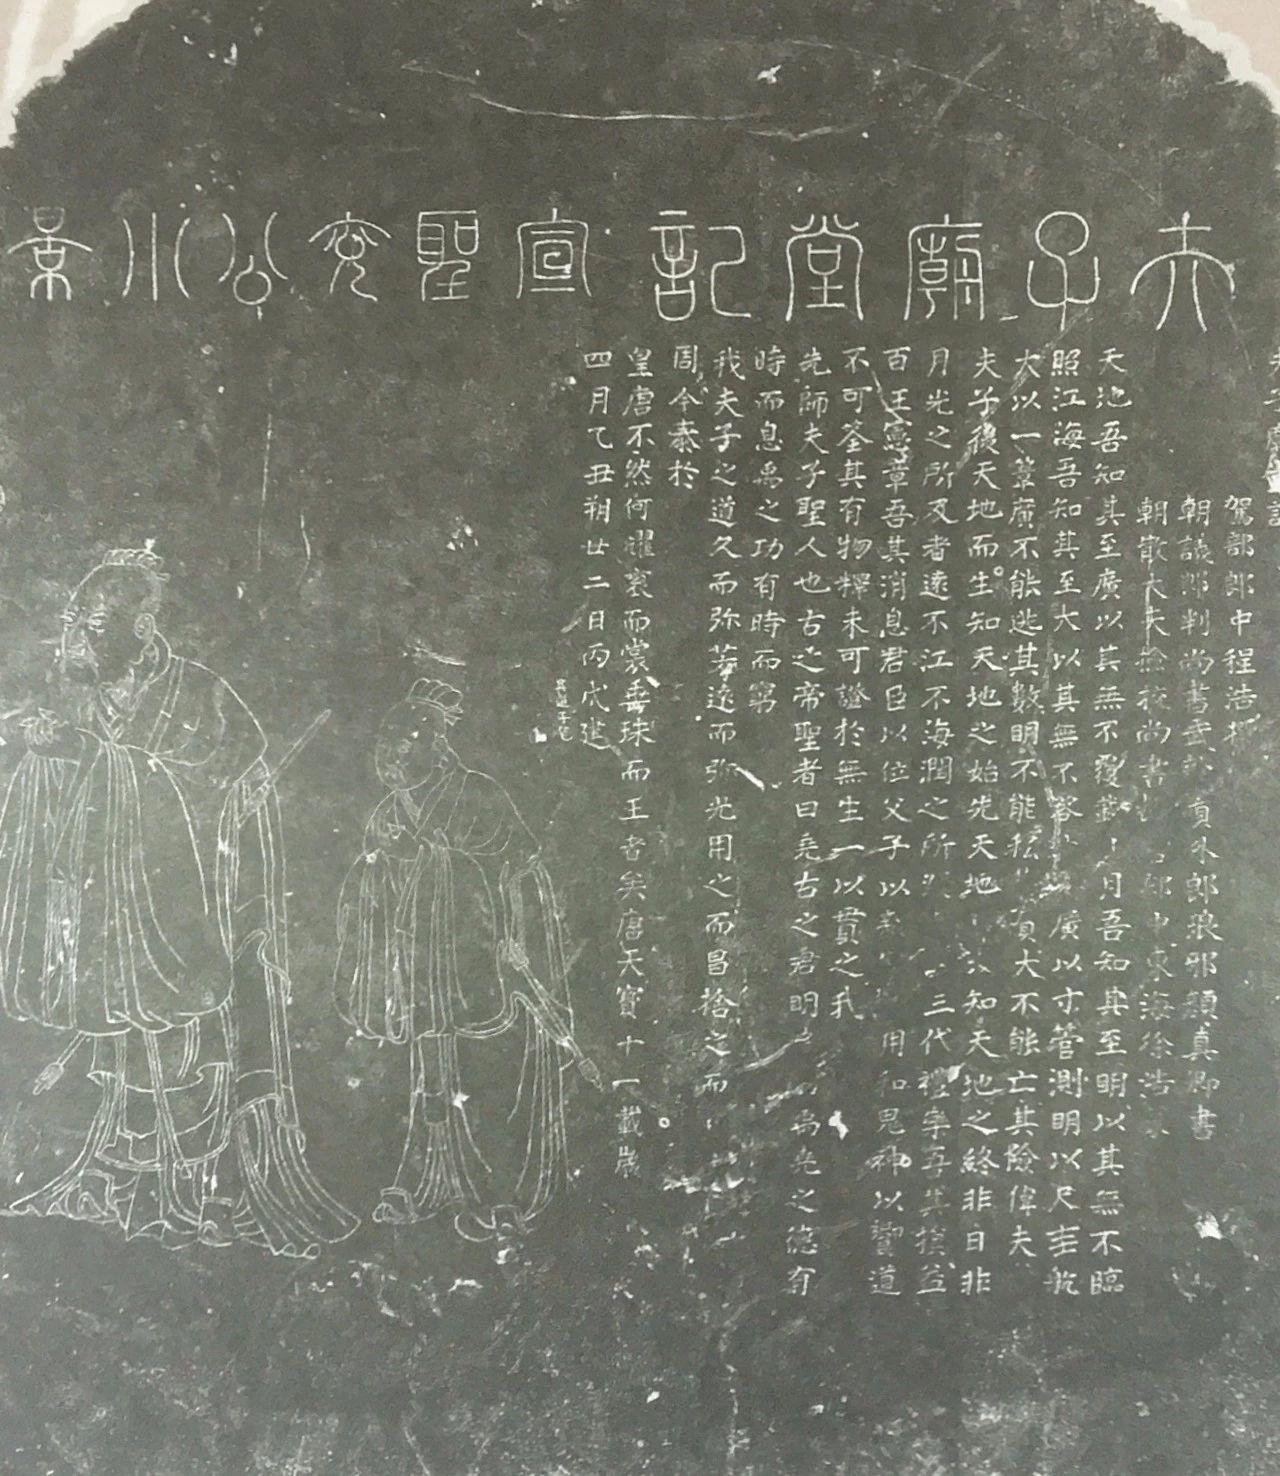 夫子廟堂記宣聖兗公小景
夫子廟堂記
駕部郎中程浩撰
朝議郎判尚書武部員外郎琅邪顏真卿書
朝散大夫檢校尚書 郎中東海徐浩
天地吾知其至廣以其無不覆載 月吾知其至明以其無不臨
照江海吾知其至大以其無不容 廣以寸管測明以尺圭航
大以一葦廣不能逃其數明不能私 大不能亡其險偉夫
夫子後天地而生知天地之始先天地 知天地之終非日非
月光之所及者遠不江不海潤之所 三代禮樂吾其損益
百王憲章吾其消息君臣以位父子以 用和鬼神以饗道
不可筌其有物釋未可證於無生一以貫之我
先師夫子聖人也古之帝聖者曰堯古之君明 禹堯之德有
時而息禹之功有時而窮
我夫子之道久而弥芳遠而弥光用之而昌捨之而
周今泰於
皇唐不然何耀袞而裳垂珠而王者矣唐天寶十一載歲
四月乙丑朔廿二日丙戌建